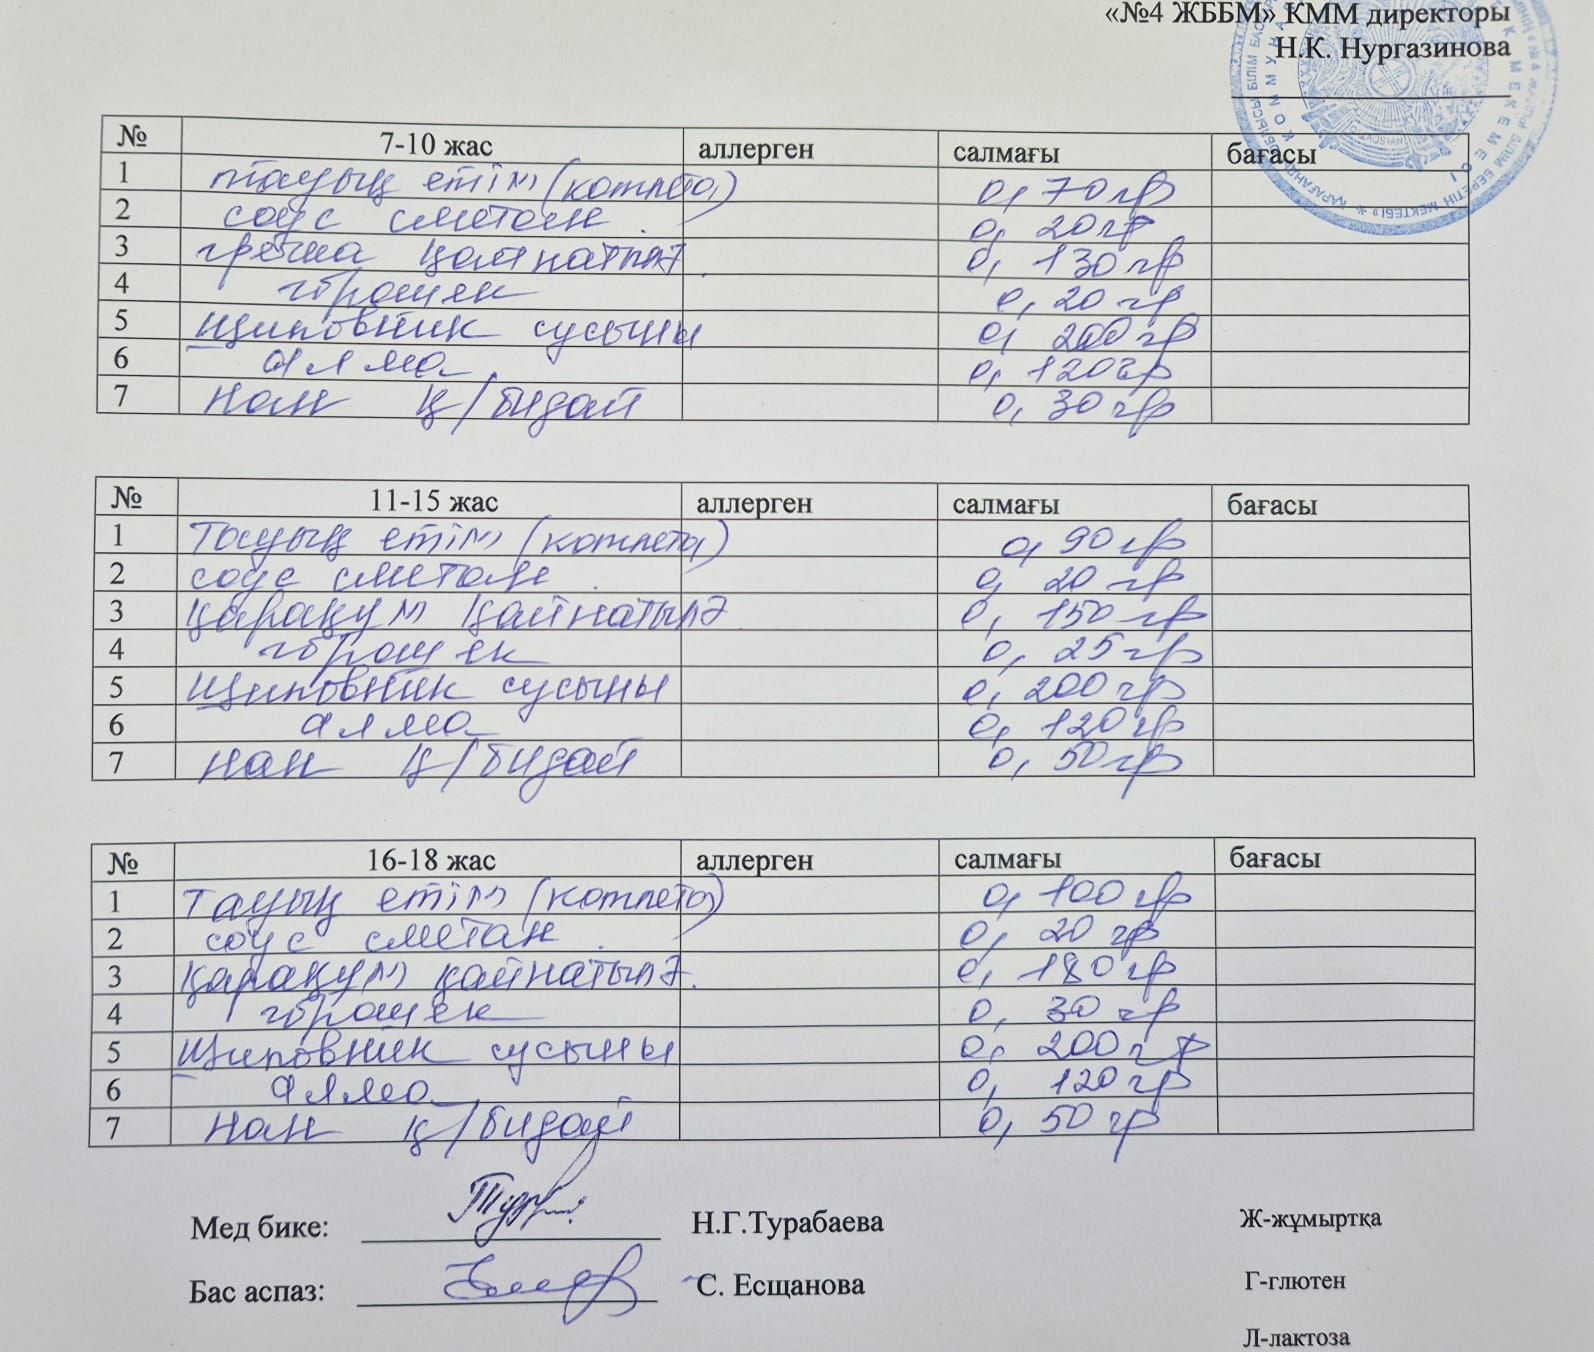 «№4 ЖББМ» КММ директоры
Н.К. Нургазинова
№ 7-10 жас аллерген салмағы бағасы
1 тауық етім (котлета) 0, 70 гр
2 соус сметан 0, 20 гр
3 гречка қайнатылғ. 0, 130 гр
4 горошек 0, 20 гр
5 Щиповник сусыны 0, 200 гр
6 алма 0, 120 гр
7 Нан қ/бидай 0, 30 гр
№ 11-15 жас аллерген салмағы бағасы
1 Тауық етім (котлета) 0, 90 гр
2 соус сметан 0, 20 гр
3 қарақұм қайнатылғ 0, 150 гр
4 горошек 0, 25 гр
5 Щиповник сусыны 0, 200 гр
6 алма 0, 120 гр
7 Нан қ/бидай 0, 50 гр
№ 16-18 жас аллерген салмағы бағасы
1 Тауық етім (котлета) 0, 100 гр
2 соус сметан 0, 20 гр
3 қарақұм қайнатылғ. 0, 180 гр
4 горошек 0, 30 гр
5 Щиповник сусыны 0, 200 гр
6 алма 0, 120 гр
7 Нан қ/бидай 0, 50 гр
Мед бике: Н.Г.Турабаева Ж-жұмыртқа
Бас аспаз: С. Есщанова Г-глютен
Л-лактоза